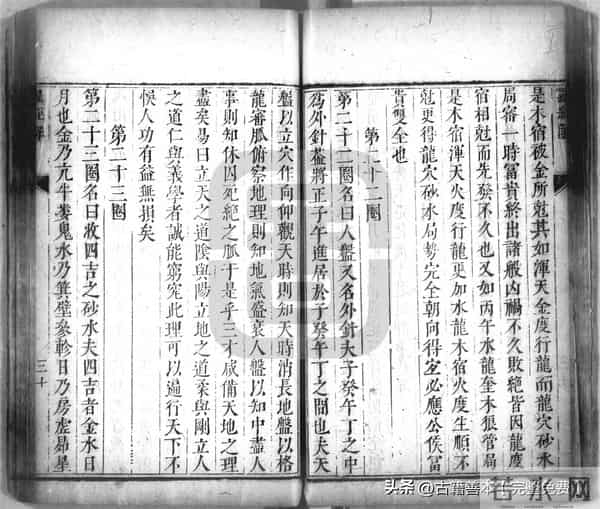 是木宿破金所尅其如渾天金度行龍而龍穴砂水
局審一時富貴終出諸般凶禍不久敗絶皆因龍度
宿相尅而先發不久也又如丙午水龍奎木狼管局
是木宿渾天火度行龍更加水龍木宿火度生順不
尅更得龍穴砂水局勢完全朝向得室必應公侯富
貴雙全也
第二十二圈
第二十二圈名曰人盤又名外針夫子癸午丁之中
為外針蓋將正子午進居於子癸午丁之間也夫天
盤以立穴作向仰觀天時則知天時消長地盤以格
龍審脈俯察地理則知地氣盛衰人盤以知中盡人
事則知休囚死絶之脈于是乎三才咸備天地之理
盡矣易曰立天之道陰與陽立地之道柔與剛立人
之道仁與義學者誠能窮究此理可以遍行天下不
悞人功有益無損矣
第二十三圈
第二十三圈名曰收四吉之砂水夫四吉者金水日
月也金乃亢牛婁鬼水乃箕壁參軫日乃房虛昴星
三十
头条 @古籍善本